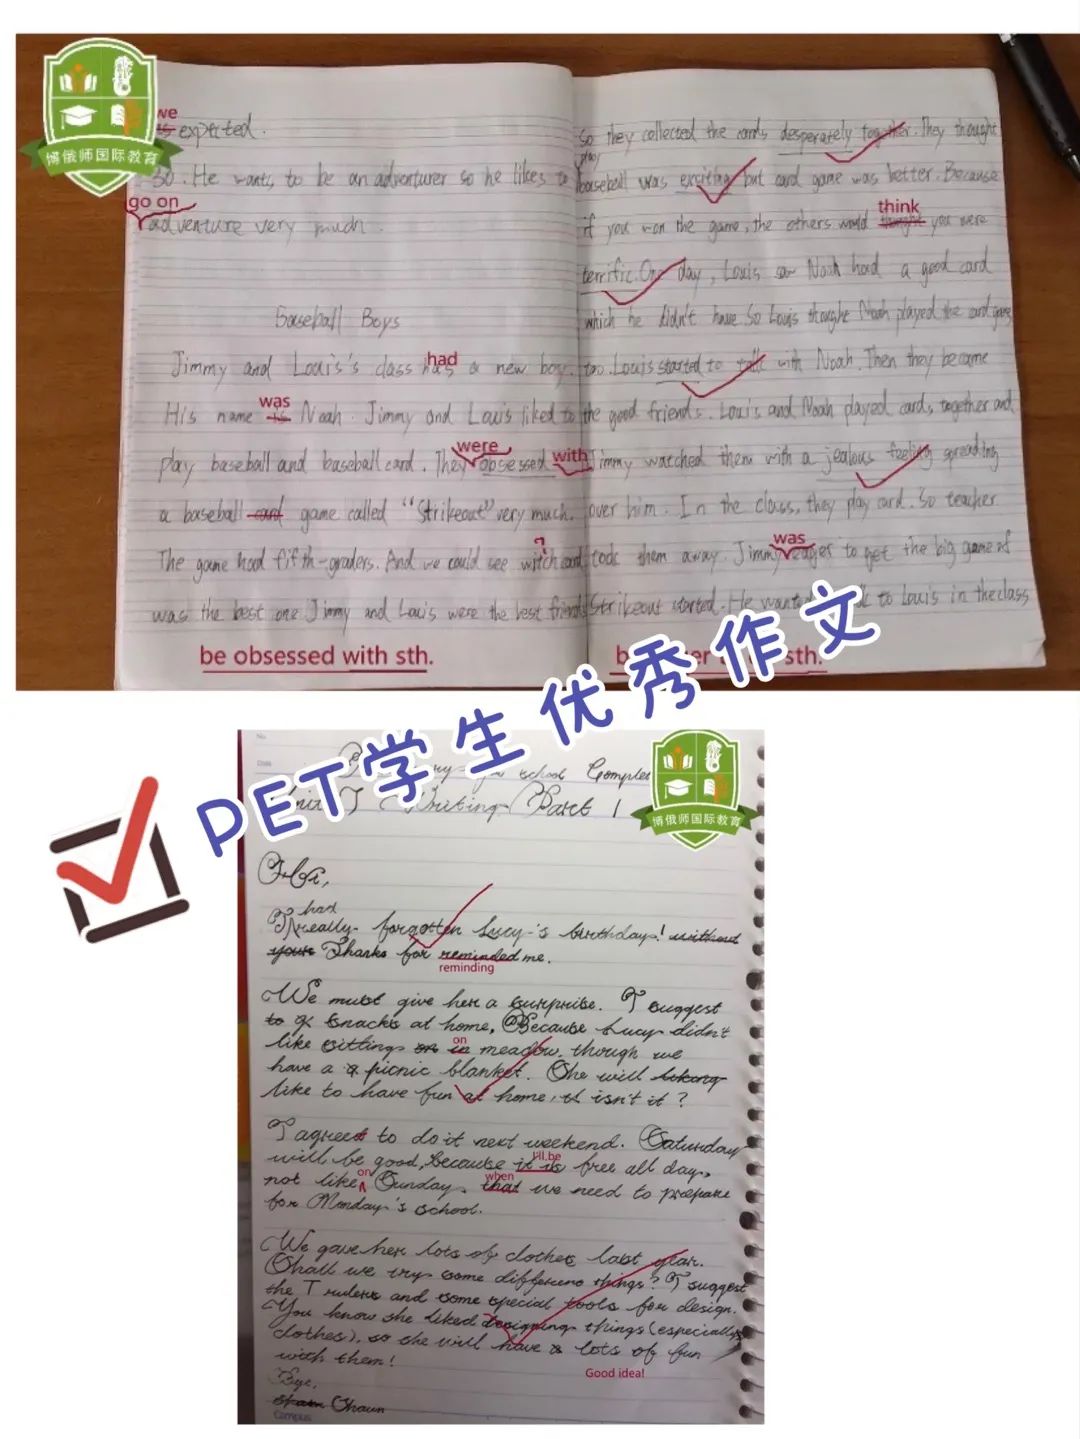 博俄师国际教育
we
is expected.
so. He wants to be an adventurer so he likes to
go on
adventure very much.
Baseball Boys
had
Jimmy and Louis's class has a new boy.
was
His name is Noah. Jimmy and Louis liked to
were
with
play baseball and baseball card. They obsessed
a baseball card game called "Strikeout" very much.
The game had fifth-graders. And we could see witch card
was the best one. Jimmy and Louis were the best friends
be obsessed with sth.
So they collected the cards desperately together. They thought
play
baseball was exciting but card game was better. Because
think
if you won the game, the others would thought you were
terrific. One day, Louis saw Noah had a good card
which he didn't have. So Louis thought Noah played the card game
too. Louis started to talk with Noah. Then they became
the good friends. Louis and Noah played cards together and
Jimmy watched them with a jealous feeling spreading
over him. In the class, they play card. So teacher
was
took them away. Jimmy eager to get the big game of
Strikeout started. He wanted to Louis in the class
sth.
PET学生优秀作文
博俄师国际教育
No.
Date
school Complet
Unit Writing Part 1
had
I really forgotten Lucy's birthday! without
your Thanks for reminded me.
reminding
We must give her a surprise. I suggest
to snacks at home, Because Lucy didn't
on
like sitting on in meadow, though we
have a picnic blanket. She will liking
like to have fun at home, isn't it?
I agreed to do it next weekend. Saturday
I'll be
will be good, because it is free all day,
on
when
not like Sunday, that we need to prepare
for Monday's school.
We gave her lots of clothes last year.
Shall we try some different things? I suggest
the rulers and some special tools for design.
You know she liked designing things (especially
clothes), so she will have lots of fun
with them!
Good idea!
Bye,
Shaun
Campus